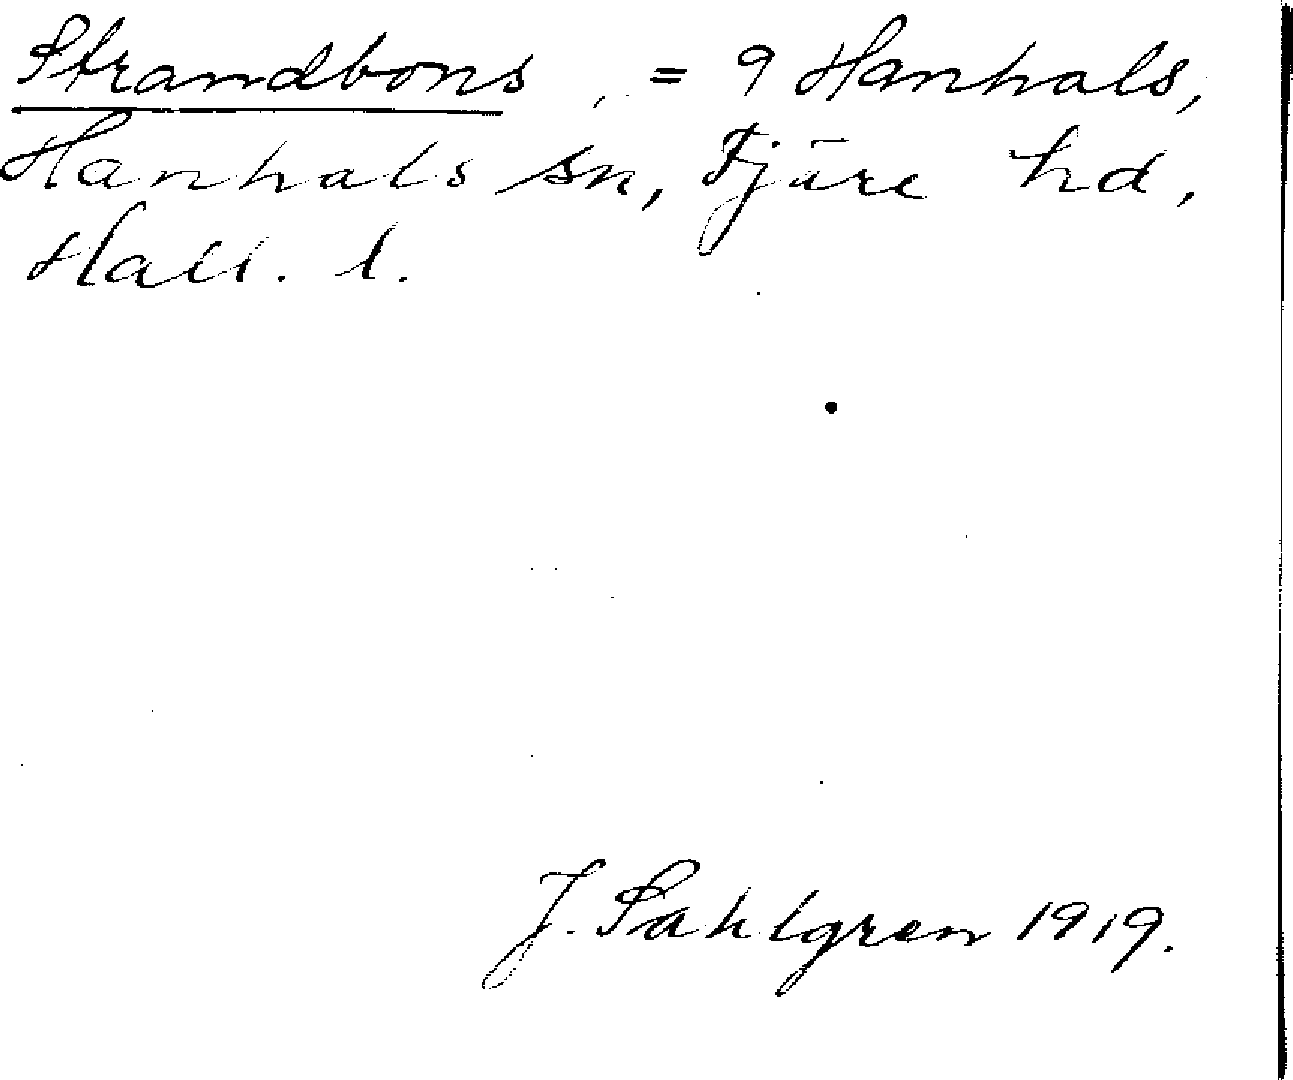 Strandbons, = 9 Hanhals,
Hanhals sn, Fjäre hd,
Hall. l.
J. Sahlgren 1919.